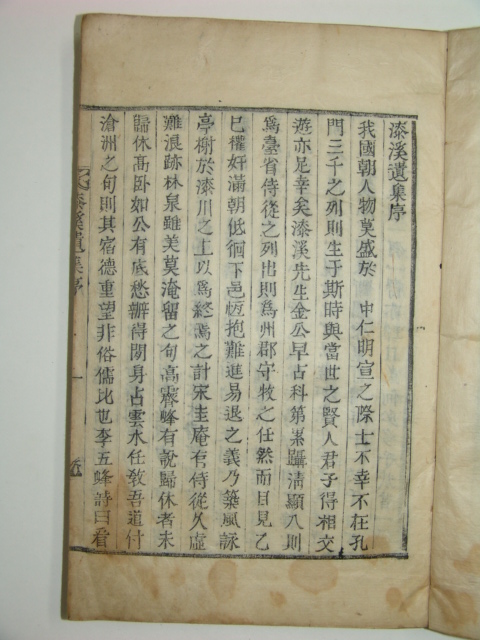 漆溪遺集序
我國朝人物莫盛於 中仁明宣之際士不幸不在孔
門三千之列則生于斯時與當世之賢人君子得相交
遊亦足幸矣漆溪先生金公早占科第累躡淸顯入則
爲臺省侍從之列出則爲州郡守牧之任然而目見乙
巳權奸滿朝低徊下邑恆抱難進易退之義乃築風詠
亭榭於漆川之上以爲終焉之計宋圭庵有侍從久虛
難浪跡林泉雖美莫淹留之句高霽峰有說歸休者未
歸休高卧如公有底愁辦得閑身占雲水任敎吾道付
滄洲之句則其宿德重望非俗儒比也李五峰詩曰看
漆溪遺集序
一